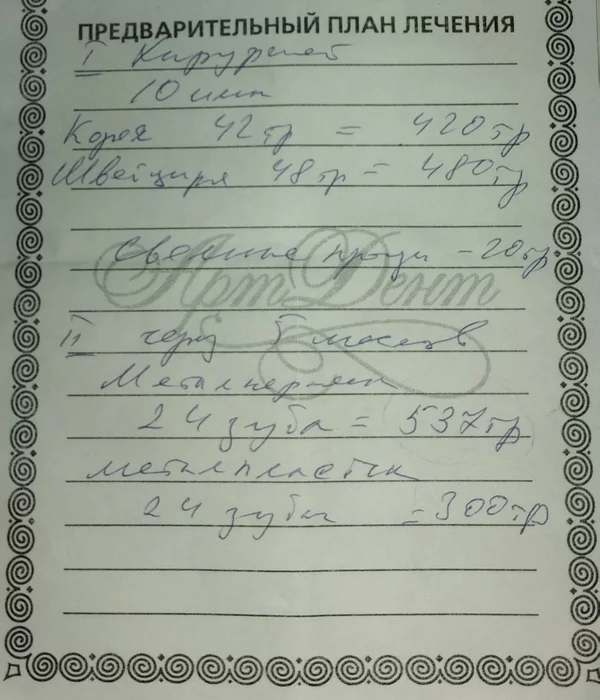 ПРЕДВАРИТЕЛЬНЫЙ ПЛАН ЛЕЧЕНИЯ
I Хирургией
10 импл
Корея 42тр = 420тр
Швейцария 48тр = 480тр
съемные протезы - 20тр
АртДент
II через 5 месяцев
Металкерамика
24 зуба = 537тр
металпластик
24 зуба = 300тр